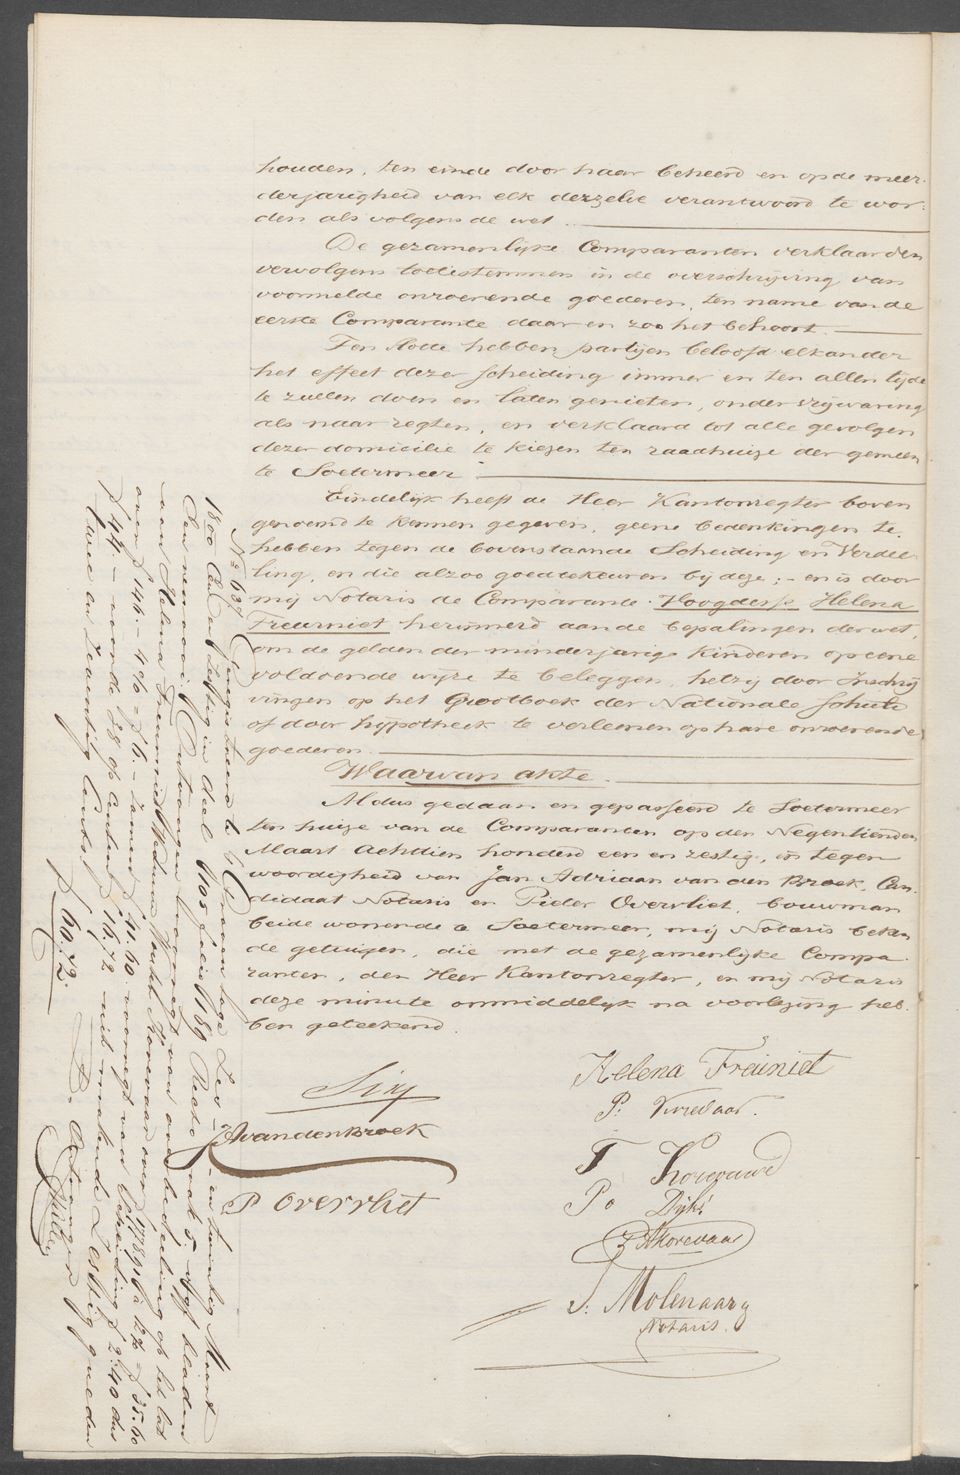 houden, ten einde door haar beheerd en op de meer-
derjarigheid van elk derzelve verantwoord te wor-
den als volgens de wet.
De gezamenlijke Comparanten verklaarden
vervolgens toetestemmen in de overschrijving van
voormelde onroerende goederen, ten name van de
eerste Comparante daar en zoo het behoort.
Ten slotte hebben partijen beloofd elkander
het effect dezer scheiding immer en ten allen tijde
te zullen doen en laten genieten, onder vrijwaring
als naar regten, en verklaard tot alle gevolgen
dezer domicilie te kiezen ten raadhuize der gemeen
te Soetermeer
Eindelijk heeft de Heer Kantonregter boven
genoemd te kennen gegeven, geene bedenkingen te
hebben tegen de bovenstaande Scheiding en Verdee-
ling, en die alzoo goedtekeuren bij deze; - en is door
mij Notaris de Comparante Voogdesse Helena
Freurniet herinnerd aan de bepalingen der wet,
om de gelden der minderjarige kinderen op eene
voldoende wijze te beleggen, hetzij door Inschrij
vingen op het Grootboek der Nationale Schuld
of door hypotheek te verleenen op hare onroerende
goederen.
Waarvan akte.
Aldus gedaan en gepasseerd te Soetermeer
ten huize van de Comparanten op den Negentienden
Maart Achttien honderd een en zestig, in tegen
woordigheid van Jan Adriaan van den Broek, Can-
didaat Notaris en Pieter Overvliet, bouwman
beide wonende a Soetermeer, mij Notaris beken
de getuigen, die met de gezamenlijke Compa-
ranten, den Heer Kantonregter, en mij Notaris
deze minute onmiddelijk na voorlezing heb-
ben geteekend.
Helena Freurniet
P:
JA vanden Broek
P Overvliet
P Dijk
Korevaar
J. Molenaar
Notaris.
No 637 Geregistreerd te
1800 een en zestig in deel folio 189 Recto vak 5. bladen
een renvooi
aan Helena Freurniet Weduwe Korevaar over
over f 146.- 4% = f 6.- zamen f 41.60
f 44.- f 19.72 uitmakende Zestig gulden
twee en zeventig Cents f 60.72.
De Ontvanger